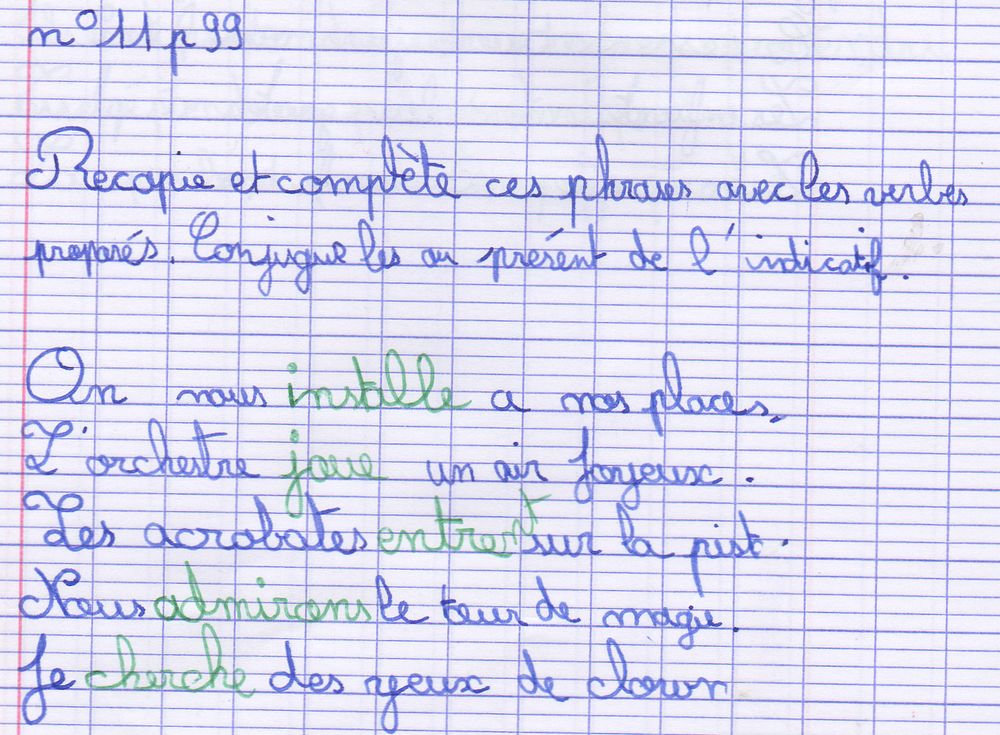 n° 11 p 99
Recopie et complète ces phrases avec les verbes
proposés. Conjugue les au présent de l'indicatif.
On nous installe a nos places.
L'orchestre joue un air joyeux.
Les acrobates entrent sur la pist.
Nous admirons le tour de magie.
Je cherche des yeux de clown